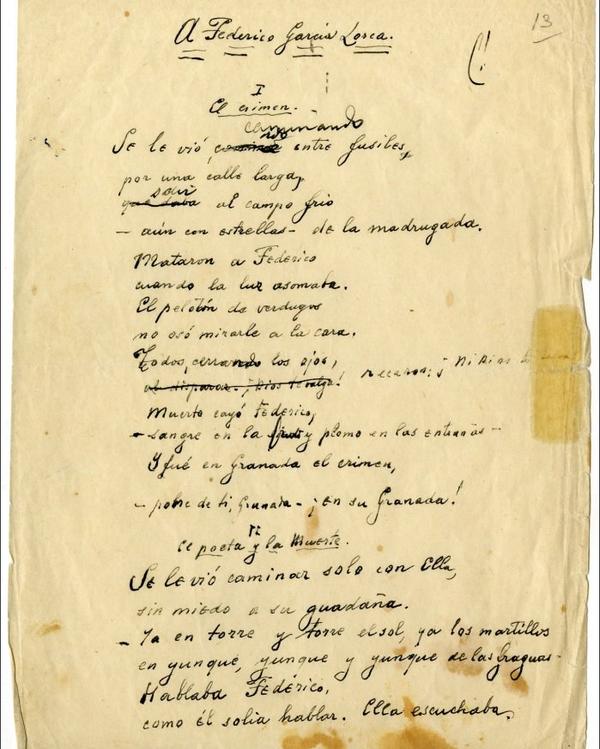 13
A Federico García Lorca.
I
El crimen.
caminando
Se le vió entre fusiles,
por una calle larga,
salir
que daba al campo frio
- aún con estrellas - de la madrugada.
Mataron a Federico
cuando la luz asomaba.
El pelotón de verdugos
no osó mirarle a la cara.
Todos, cerrando los ojos,
al disparar. ¡Dios te valga! rezaron: ¡Ni Dios
Muerto cayó Federico,
- sangre en la frente y plomo en las entrañas -
Y fué en Granada el crimen,
- pobre de ti, Granada - ¡en su Granada!
II
El poeta y la Muerte.
Se le vió caminar solo con Ella,
sin miedo a su guadaña.
- Ya en torre y torre el sol, ya los martillos
en yunque, yunque y yunque de las fraguas -
Hablaba Federico,
como él solia hablar. Ella escuchaba.